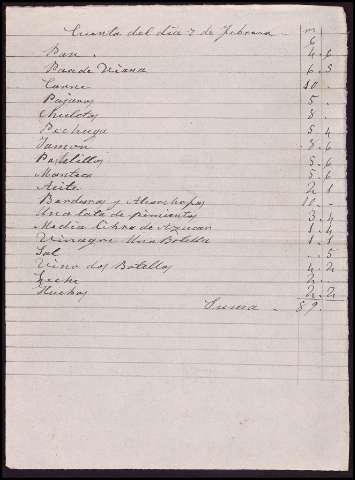 Cuenta del dia 7 de febrero m
6
Pan . 4 . 6
Pan de Viana 6 . 5
Carne 10 .
Pájaros 5 .
Chuletas 8 .
Pechuga 5 4
Jamon 8 . 6
Pastelillos 5 . 6
Manteca 5 6
Aite 2 1
y Alcachofas 10 . -
Una lata de pimientos 3 . 4
Media Libra de Azucar 1 . 4
Vinagre Una Botella 1 . 1
Sal . . 5
Vino dos Botellas 4 . 2
Leche 2 .
Huebos 2 . 2
Suma . 89 .